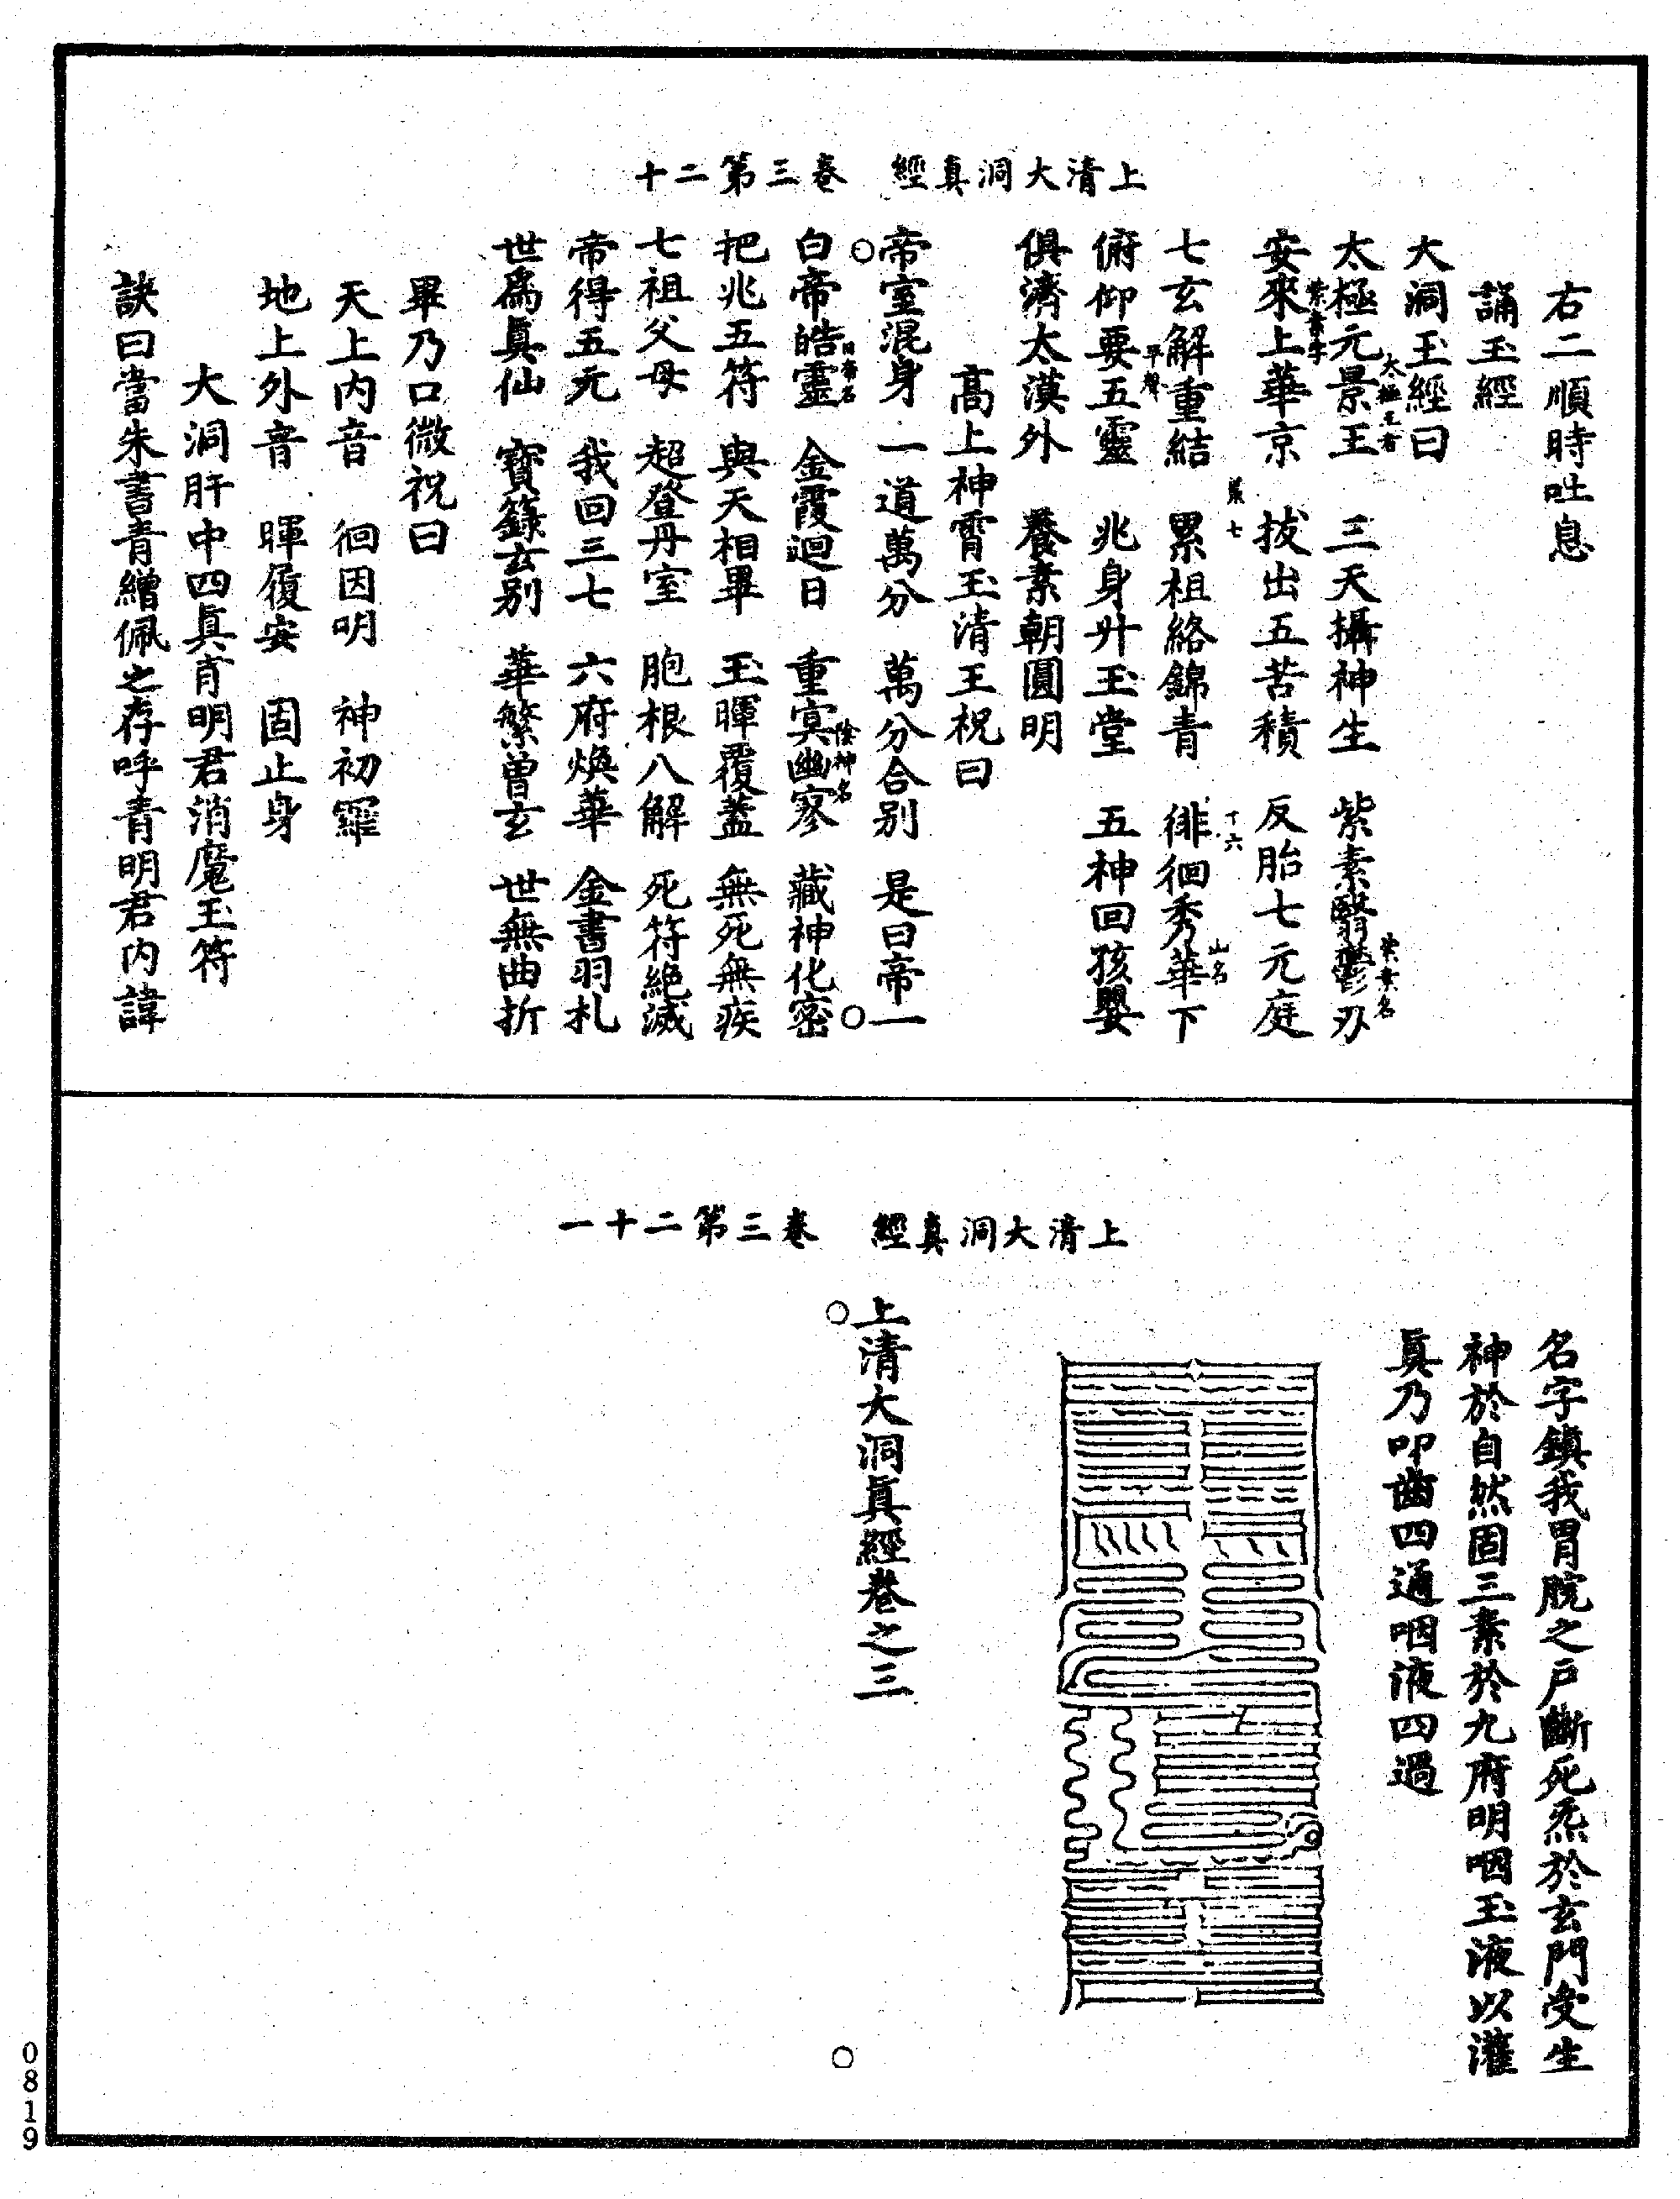 上清大洞真經　卷三第二十
右二順時吐息
誦玉經
大洞玉經曰
太極元景王太極王者　三天攝神生　紫素翳鬱刃紫素名
安來上紫素字華京　拔出五苦積　反胎七元庭
七玄解重結　累七累祖絡錦青　徘十六徊秀華山名下
俯仰要平聲五靈　兆身升玉堂　五神回孩嬰
俱濟太漠外　養素朝圓明
高上神霄玉清王祝曰
帝室混身　一道萬分　萬分合別　是曰帝一
白帝皓靈日帝名　金霞迴日　重寘幽寥陰神名　藏神化密
把兆五符　與天相畢　玉暉覆蓋　無死無疾
七祖父母　超登丹室　胞根八解　死符絕滅
帝得五元　我回三七　六府煥華　金書羽札
世爲真仙　寶籙玄別　華繁曾玄　世無曲折
畢乃口微祝曰
天上內音　徊因明　神初羅
地上外音　暉履安　固止身
大洞肝中四真青明君消魔玉符
訣曰當朱書青繒佩之存呼青明君內諱
上清大洞真經　卷三第二十一
名字鎮我胃脘之戶斷死炁於玄門受生
神於自然固三素於九府明咽玉液以灌
真乃叩齒四通咽液四過
上清大洞真經卷之三
0819